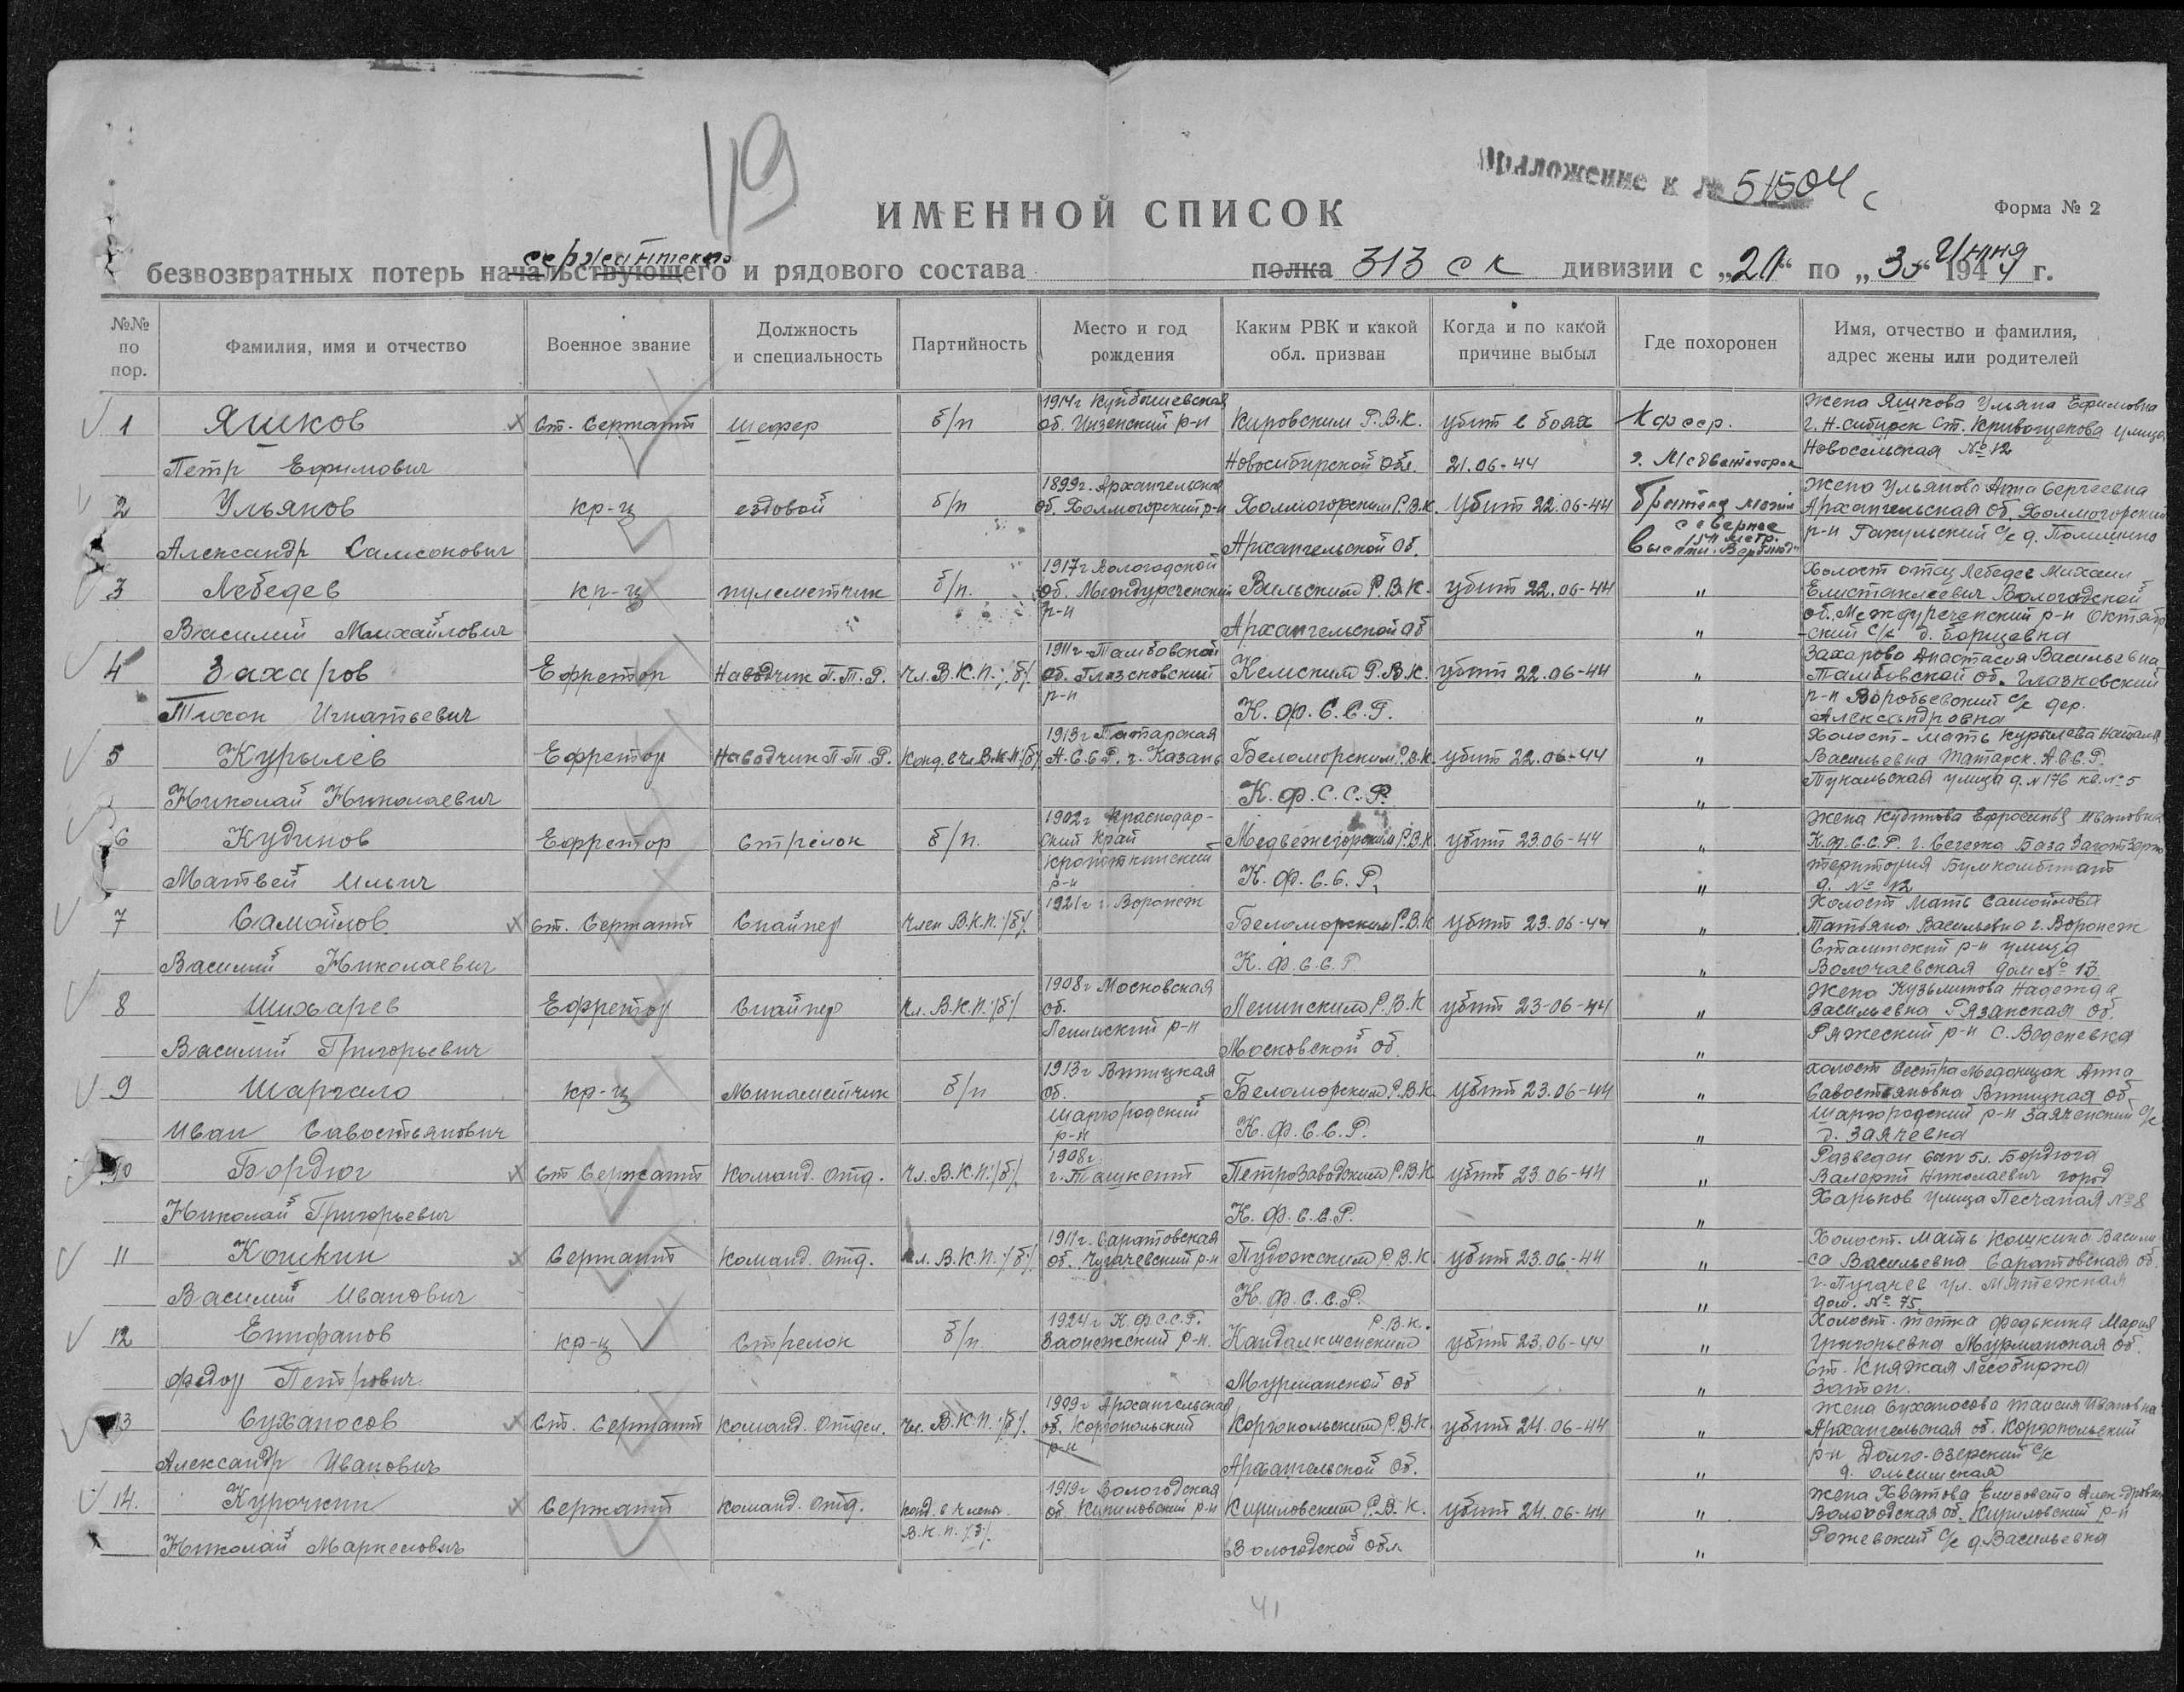 119
Приложение к № 51504 с
ИМЕННОЙ СПИСОК
Форма № 2
сержантского
безвозвратных потерь начальствующего и рядового состава полка 313 с к дивизии с „20“ по „30“ Июня 1944 г.
№№ по пор. Фамилия, имя и отчество Военное звание Должность и специальность Партийность Место и год рождения Каким РВК и какой обл. призван Когда и по какой причине выбыл Где похоронен Имя, отчество и фамилия, адрес жены или родителей
1 Яшков Петр Ефимович Ст. Сержант Шофер б/п 1914г Куйбышевская об. Инзенский р-н Кировским Р.В.К. Новосибирской Обл. убит в боях 21.06-44 Кфсср. г. Медвежегорск Жена Яшкова Ульяна Ефимовна г. Н-сибирск ст. Кривощекова улица Новосельская № 12
2 Ульянов Александр Самсонович кр-ц ездовой б/п 1899г. Архангельская об. Холмогорский р-н Холмогорским Р.В.К. Архангельской Об. Убит 22.06-44 братская могила севернее 150 метр. высоты „Верблюд“ Жена Ульянова Анна Сергеевна Архангельская Об. Холмогорский р-н Ракульский с/с д.
3 Лебедев Василий Михайлович кр-ц пулеметчик б/п. 1917г Вологодской об. Междуреченский р-н Вельским Р.В.К. Архангельской об убит 22.06-44 „ „ Холост отец Лебедев Михаил Вологодской об. Междуреченский р-н Октябр-ский с/с д. Борщевка
4 Захаров Тихон Игнатьевич Ефрейтор Наводчик П.Т.Р. Чл. В.К.П./б/. 1911г Тамбовской об. Глазковский р-н Кемским Р.В.К. К.Ф.С.С.Р. убит 22.06-44 „ „ Захарова Анастасия Васильевна Тамбовской об. Глазковский р-н Воробьевский с/с дер. Александровка
5 Курылев Николай Николаевич Ефрейтор Наводчик П.Т.Р. Канд. в чл. В.К.П./б/ 1913г Татарская А.С.С.Р. г. Казань Беломорским Р.В.К. К.Ф.С.С.Р. убит 22.06-44 „ „ Холост - мать Курылева Наталья Васильевна Татарск. А.С.С.Р. улица д. № 176 кв. № 5
6 Кудинов Матвей Ильич Ефрейтор Стрелок б/п. 1902г Краснодар-ский край Кропоткинский р-н Медвежегорским Р.В.К. К.Ф.С.С.Р. убит 23.06-44 „ „ Жена Кудинова Ефросинья Ивановна К.Ф.С.С.Р. г. Сегежа База Заготзерно территория Бумкомбинат д. № 12
7 Самойлов Василий Николаевич Ст. Сержант Снайпер Член В.К.П./б/. 1921г г. Воронеж Беломорским Р.В.К К.Ф.С.С.Р убит 23.06-44 „ „ Холост Мать Самойлова Татьяна Васильевна г. Воронеж Сталинский р-н улица Волочаевская дом № 13
8 Шихарев Василий Григорьевич Ефрейтор Снайпер Чл. В.К.П./б/ 1908г Московская об. Ленинский р-н Ленинским Р.В.К Московской Об. убит 23-06-44 „ „ Жена Кузьминова Надежда Васильевна Рязанская Об. Ряжеский р-н с.
9 Шаргало Иван Савостьянович кр-ц Минаметчик б/п 1913г Винницкая об. Шаргородский р-н Беломорским Р.В.К К.Ф.С.С.Р. убит 23.06-44 „ „ холост Сестра Анна Савостьяновна Винницкая Об Шаргородский р-н с/с д.
10 Бордюг Николай Григорьевич Ст Сержант Команд. Отд. Чл. В.К.П./б/. 1908г. г. Ташкент Петрозаводским Р.В.К К.Ф.С.С.Р. убит 23.06-44 „ „ Разведен сын 5 л. Бордюга Валерий Николаевич город Харьков улица Песчаная № 8
11 Кошкин Василий Иванович Сержант Команд. Отд. Чл. В.К.П./б/. 1911г. Саратовская об. Пугачевский р-н Пудожским Р.В.К. К.Ф.С.С.Р. убит 23.06-44 „ „ Холост. Мать Кошкина Васили-са Васильевна Саратовская об. г. Пугачев ул. Мятежная дом. № 75
12 Епифанов Федор Петрович кр-ц Стрелок б/п. 1924г К.Ф.С.С.Р. Заонежский р-н. Кандалкшенским Р.В.К. Мурманской об убит 23.06-44 „ „ Холост. тетка Федькина Мария Григорьевна Мурманская об. ст. Княжая Лесобиржа Затон.
13 Суханосов Александр Иванович Ст. Сержант Команд. Отдел. Чл. В.К.П./б/. 1909г Архангельская об. Каргопольский р-н Каргопольским Р.В.К. Архангельской Об. убит 24.06-44 „ „ Жена Суханосова Таисия Ивановна Архангельская об. Каргопольский р-н Долго-озерский с/с д.
14. Курочкин Николай Маркелович Сержант Команд. Отд. Канд. в Члены В.К.П./б/. 1919г Вологодская об. Кириловский р-н Кириловским Р.В.К. Вологодской Обл. убит 24.06-44 „ „ Жена Хватова Елизовета Вологодская об. Кириловский р-н с/с д. Васильевка
41